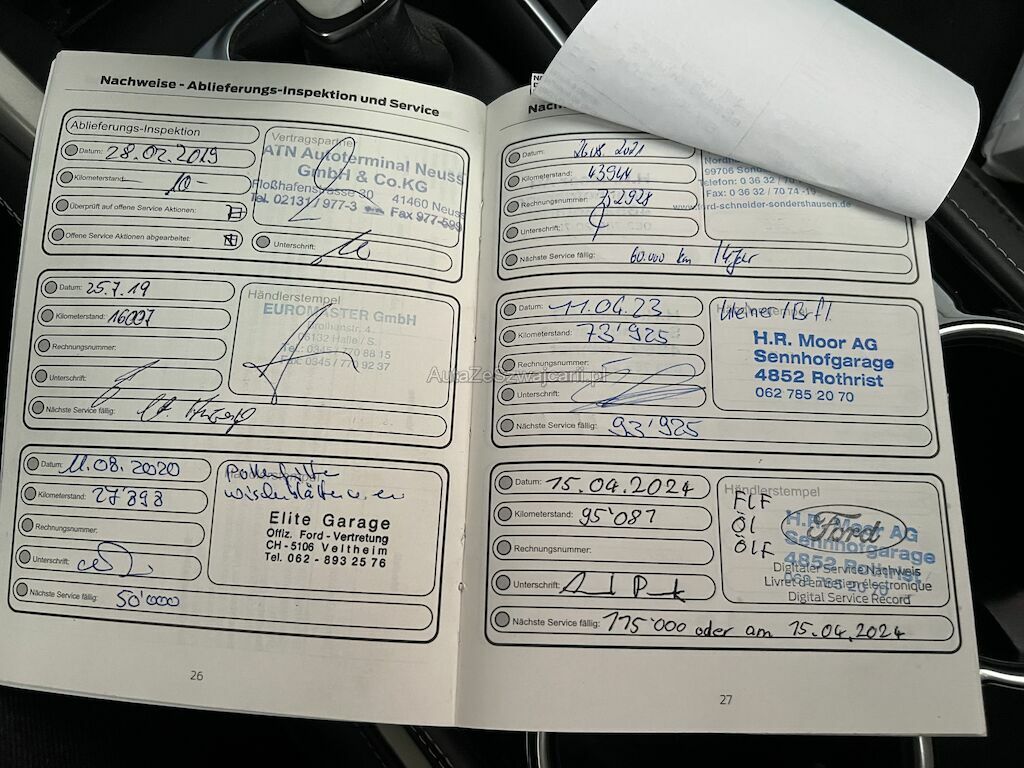 Nachweise - Ablieferungs-Inspektion und Service
Ablieferungs-Inspektion
Datum: 28.02.2019
Kilometerstand: -10-
Überprüft auf offene Service Aktionen:
Offene Service Aktionen abgearbeitet:
Vertragspartner
ATN Autoterminal Neuss
GmbH & Co.KG
Floßhafenstrasse 30
41460 Neuss
Tel. 02131/977-3 Fax 977-599
Unterschrift:
Datum: 25.7.19
Kilometerstand: 16007
Rechnungsnummer:
Unterschrift:
Nächste Service fällig:
Händlerstempel
EUROMASTER GmbH
06132 Halle/S.
Tel.: 0345 / 770 88 15
Fax: 0345 / 770 92 37
Datum: 11.08.2020
Kilometerstand: 27'898
Rechnungsnummer:
Unterschrift:
Nächste Service fällig: 50'000
Elite Garage
Offiz. Ford - Vertretung
CH - 5106 Veltheim
Tel. 062 - 893 25 76
26
Datum: 26.08.2021
Kilometerstand: 43944
Rechnungsnummer:
Unterschrift:
Nächste Service fällig: 60.000 km
99706
Telefon: 0 36 32 / 70 74 -0
Fax: 0 36 32 / 70 74 -19
www.ford-schneider-sondershausen.de
Datum: 11.04.23
Kilometerstand: 73'925
Rechnungsnummer:
Unterschrift:
Nächste Service fällig: 93'925
H.R. Moor AG
Sennhofgarage
4852 Rothrist
062 785 20 70
Datum: 15.04.2024
Kilometerstand: 95'081
Rechnungsnummer:
Unterschrift:
Nächste Service fällig: 115'000 oder am 15.04.2024
Händlerstempel
FLF
ÖL
ÖLF
Ford
H.R. Moor AG
Sennhofgarage
4852 Rothrist
062 785 20 70
Digitaler Service Nachweis
Livret d'entretien électronique
Digital Service Record
27
AutaZeSzwajcarii.pl